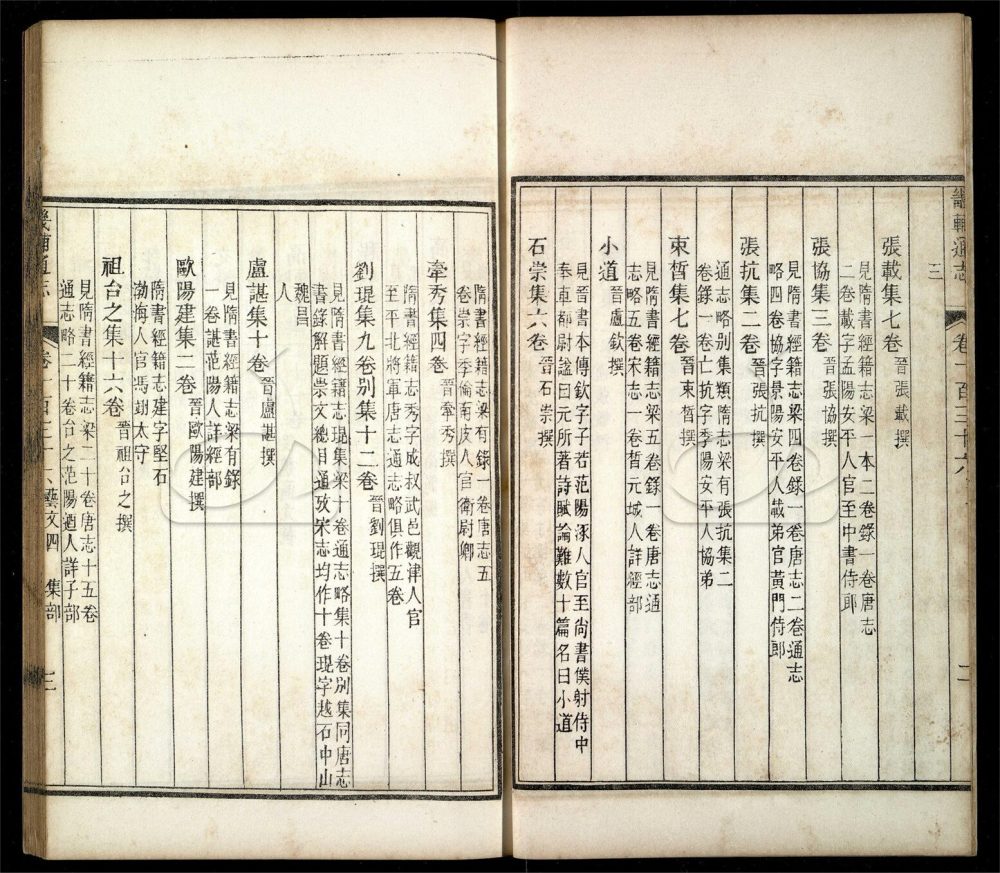 畿輔通志
卷一百三十六
二
三
張載集七卷 晉張載撰
見隋書經籍志梁一本二卷錄一卷唐志
二卷載字孟陽安平人官至中書侍郎
張協集三卷 晉張協撰
見隋書經籍志梁四卷錄一卷唐志二卷通志
略四卷協字景陽安平人載弟官黃門侍郎
張抗集二卷 晉張抗撰
通志略別集類隋志梁有張抗集二
卷錄一卷亡抗字季陽安平人協弟
束晳集七卷 晉束晳撰
見隋書經籍志梁五卷錄一卷唐志通
志略五卷宋志一卷晳元城人詳經部
小道 晉盧欽撰
見晉書本傳欽字子若范陽涿人官至尚書僕射侍中
奉車都尉諡曰元所著詩賦論難數十篇名曰小道
石崇集六卷 晉石崇撰
隋書經籍志梁有錄一卷唐志五
卷崇字季倫南皮人官衛尉卿
牽秀集四卷 晉牽秀撰
隋書經籍志秀字成叔武邑觀津人官
至平北將軍唐志通志略俱作五卷
劉琨集九卷別集十二卷 晉劉琨撰
見隋書經籍志琨集梁十卷通志略集十卷別集同唐志
書錄解題崇文總目通攷宋志均作十卷琨字越石中山
魏昌
人
盧諶集十卷 晉盧諶撰
見隋書經籍志梁有錄
一卷諶范陽人詳經部
歐陽建集二卷 晉歐陽建撰
隋書經籍志建字堅石
渤海人官馮翊太守
祖台之集十六卷 晉祖台之撰
見隋書經籍志梁二十卷唐志十五卷
通志略二十卷台之范陽遒人詳子部
畿輔通志
卷一百三十六 藝文四 集部
二